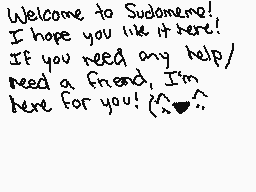 Welcome to Sudomeme!
I hope you like it here!
If you need any help/
need a friend, I'm
here for you! (^:♥^: